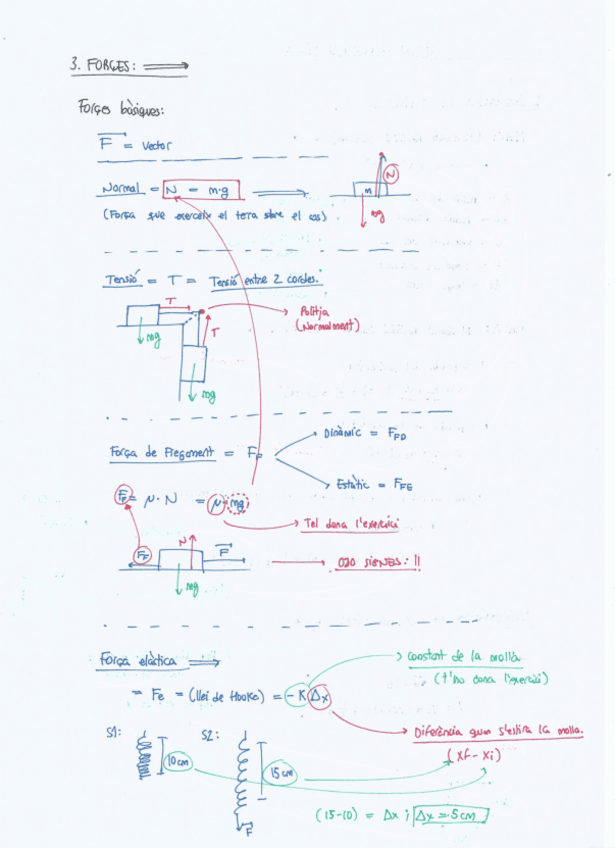 3. FORÇES:
Forçes bàsiques:
F = Vector
Normal = N = m·g
(Força que exerceix el terra sobre el cos)
N
m
mg
Tensió = T = Tensió entre 2 cordes.
T
Politja
(Normalment)
T
mg
mg
Força de Fregament = FF
Dinàmic = FFD
Estàtic = FFE
FF = μ · N = μ · mg
Te'l dona l'exercici
FF
N
F
mg
OJO SIGNES: !!
Força elàstica
Constant de la molla
(t'ho dona l'exercici)
= Fe = (Llei de Hooke) = -K Δx
Diferència quan s'estira la molla.
(xf - xi)
S1:
10cm
S2:
15cm
F
(15-10) = Δx ; Δx = 5cm